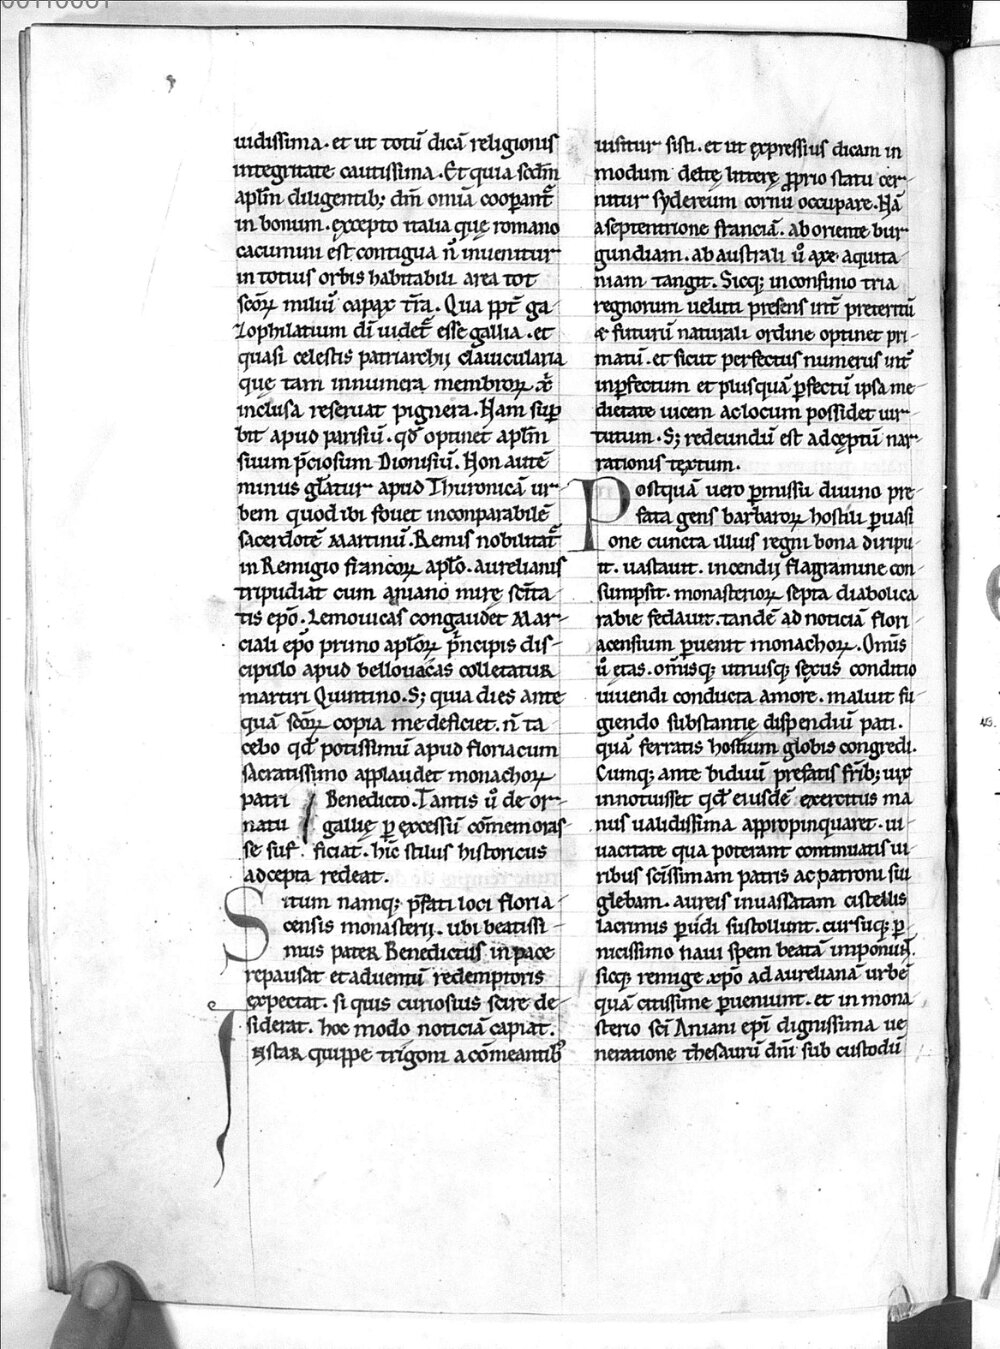 uidissima. et ut totū dicā religionis
integritate cautissima. Et quia scđm
aplm̄ diligentib; dm̄ omīa coopant̄
in bonum. excepto italia quę romano
cacumini est contigua n̄ inuenitur
in totius orbis habitabili area tot
scōꝝ miliū capax tr̄a. Qua ppt̄ ga
zophilatium dī uidet̄ esse gallia. et
quasi celestis patriarchij clauicularia
quę tam innumera membroꝝ
inclusa reseruat pignera. Nam sup
bit apud parisiū. qđ optinet aplm̄
suum p̄ciosum Dionisiū. Non autē
minus gl̄atur apud Thuronicā ur
bem quod ibi fouet inconparabilē
sacerdotē Martinū. Remis nobilitat̄
in Remigio francoꝝ aplō. aurelianis
tripudiat cum aniano mirę scīta
tis epō. Lemouicas congaudet Mar
ciali epō primo aplōꝝ p̄ncipis dis
cipulo apud bellouacas colletatur
martiri Quintino. S; quia dies ante
quā scōꝝ copia me deficiet. n̄ ta
cebo qđ potissimū apud floriacum
sacratissimo applaudet monachoꝝ
patri Benedicto. Tantis ū de or
natu gallię p excessū cōmemoras
se suf ficiat. hic stilus historicus
ad cepta redeat.
Situm namq; p̄fati loci floria
censis monasterij. ubi beatissi
mus pater Benedictus in pace
repausat et aduentū redemptoris
expectat. si quis curiosius scire de
siderat. hoc modo noticiā capiat.
Instar quippe trigoni a cōmeantib;
uisitur sisti. et ut expressius dicam in
modum deltę litterę pprio statu cer
nitur sydereum cornu occupare. Hā
a septentrione franciā. ab oriente bur
gundiam. ab australi ū axe aquita
niam tangit. Sicq; in confinio tria
regnorum ueluti presens int̄ preteritū
& futurū naturali ordine optinet pri
matū. et sicut perfectus numerus int̄
inpfectum et plusquā pfectū ipsa me
dietate uicem ac locum possidet uir
tutum. S; redeundū est ad cęptū nar
rationis textum.
Postquā uero pmissu diuino pre
fata gens barbaroꝝ hostili puasi
one cuncta illius regni bona diripu
it. uastauit. incendij flagramine con
sumpsit. monasterioꝝ septa diabolica
rabie fedauit. tandē ad noticiā flori
acensium puenit monachoꝝ. Omīs
ū ętas. omīsq; utriusq; sexus conditio
uiuendi conducta amore. maluit fu
giendo substantię dispendiū pati.
quā ferratis hostium globis congredi.
Cumq; ante biduū prefatis frīb; uix
innotuisset qđ eiusdē exercitus ma
nus ualidissima appropinquaret. ui
uacitate qua poterant continuatis ui
ribus scīssimam patris ac patroni sui
glebam. aureis inuassatam cistellis
lacrimis pfidi sustollunt. cursuq; p
nicissimo naui spem beatā imponunt.
sicq; remige xpō ad aurelianā urbē
quā citissime pueniunt. et in mona
sterio scī Aniani epī dignissima ue
neratione thesaurū dnī sub custodū